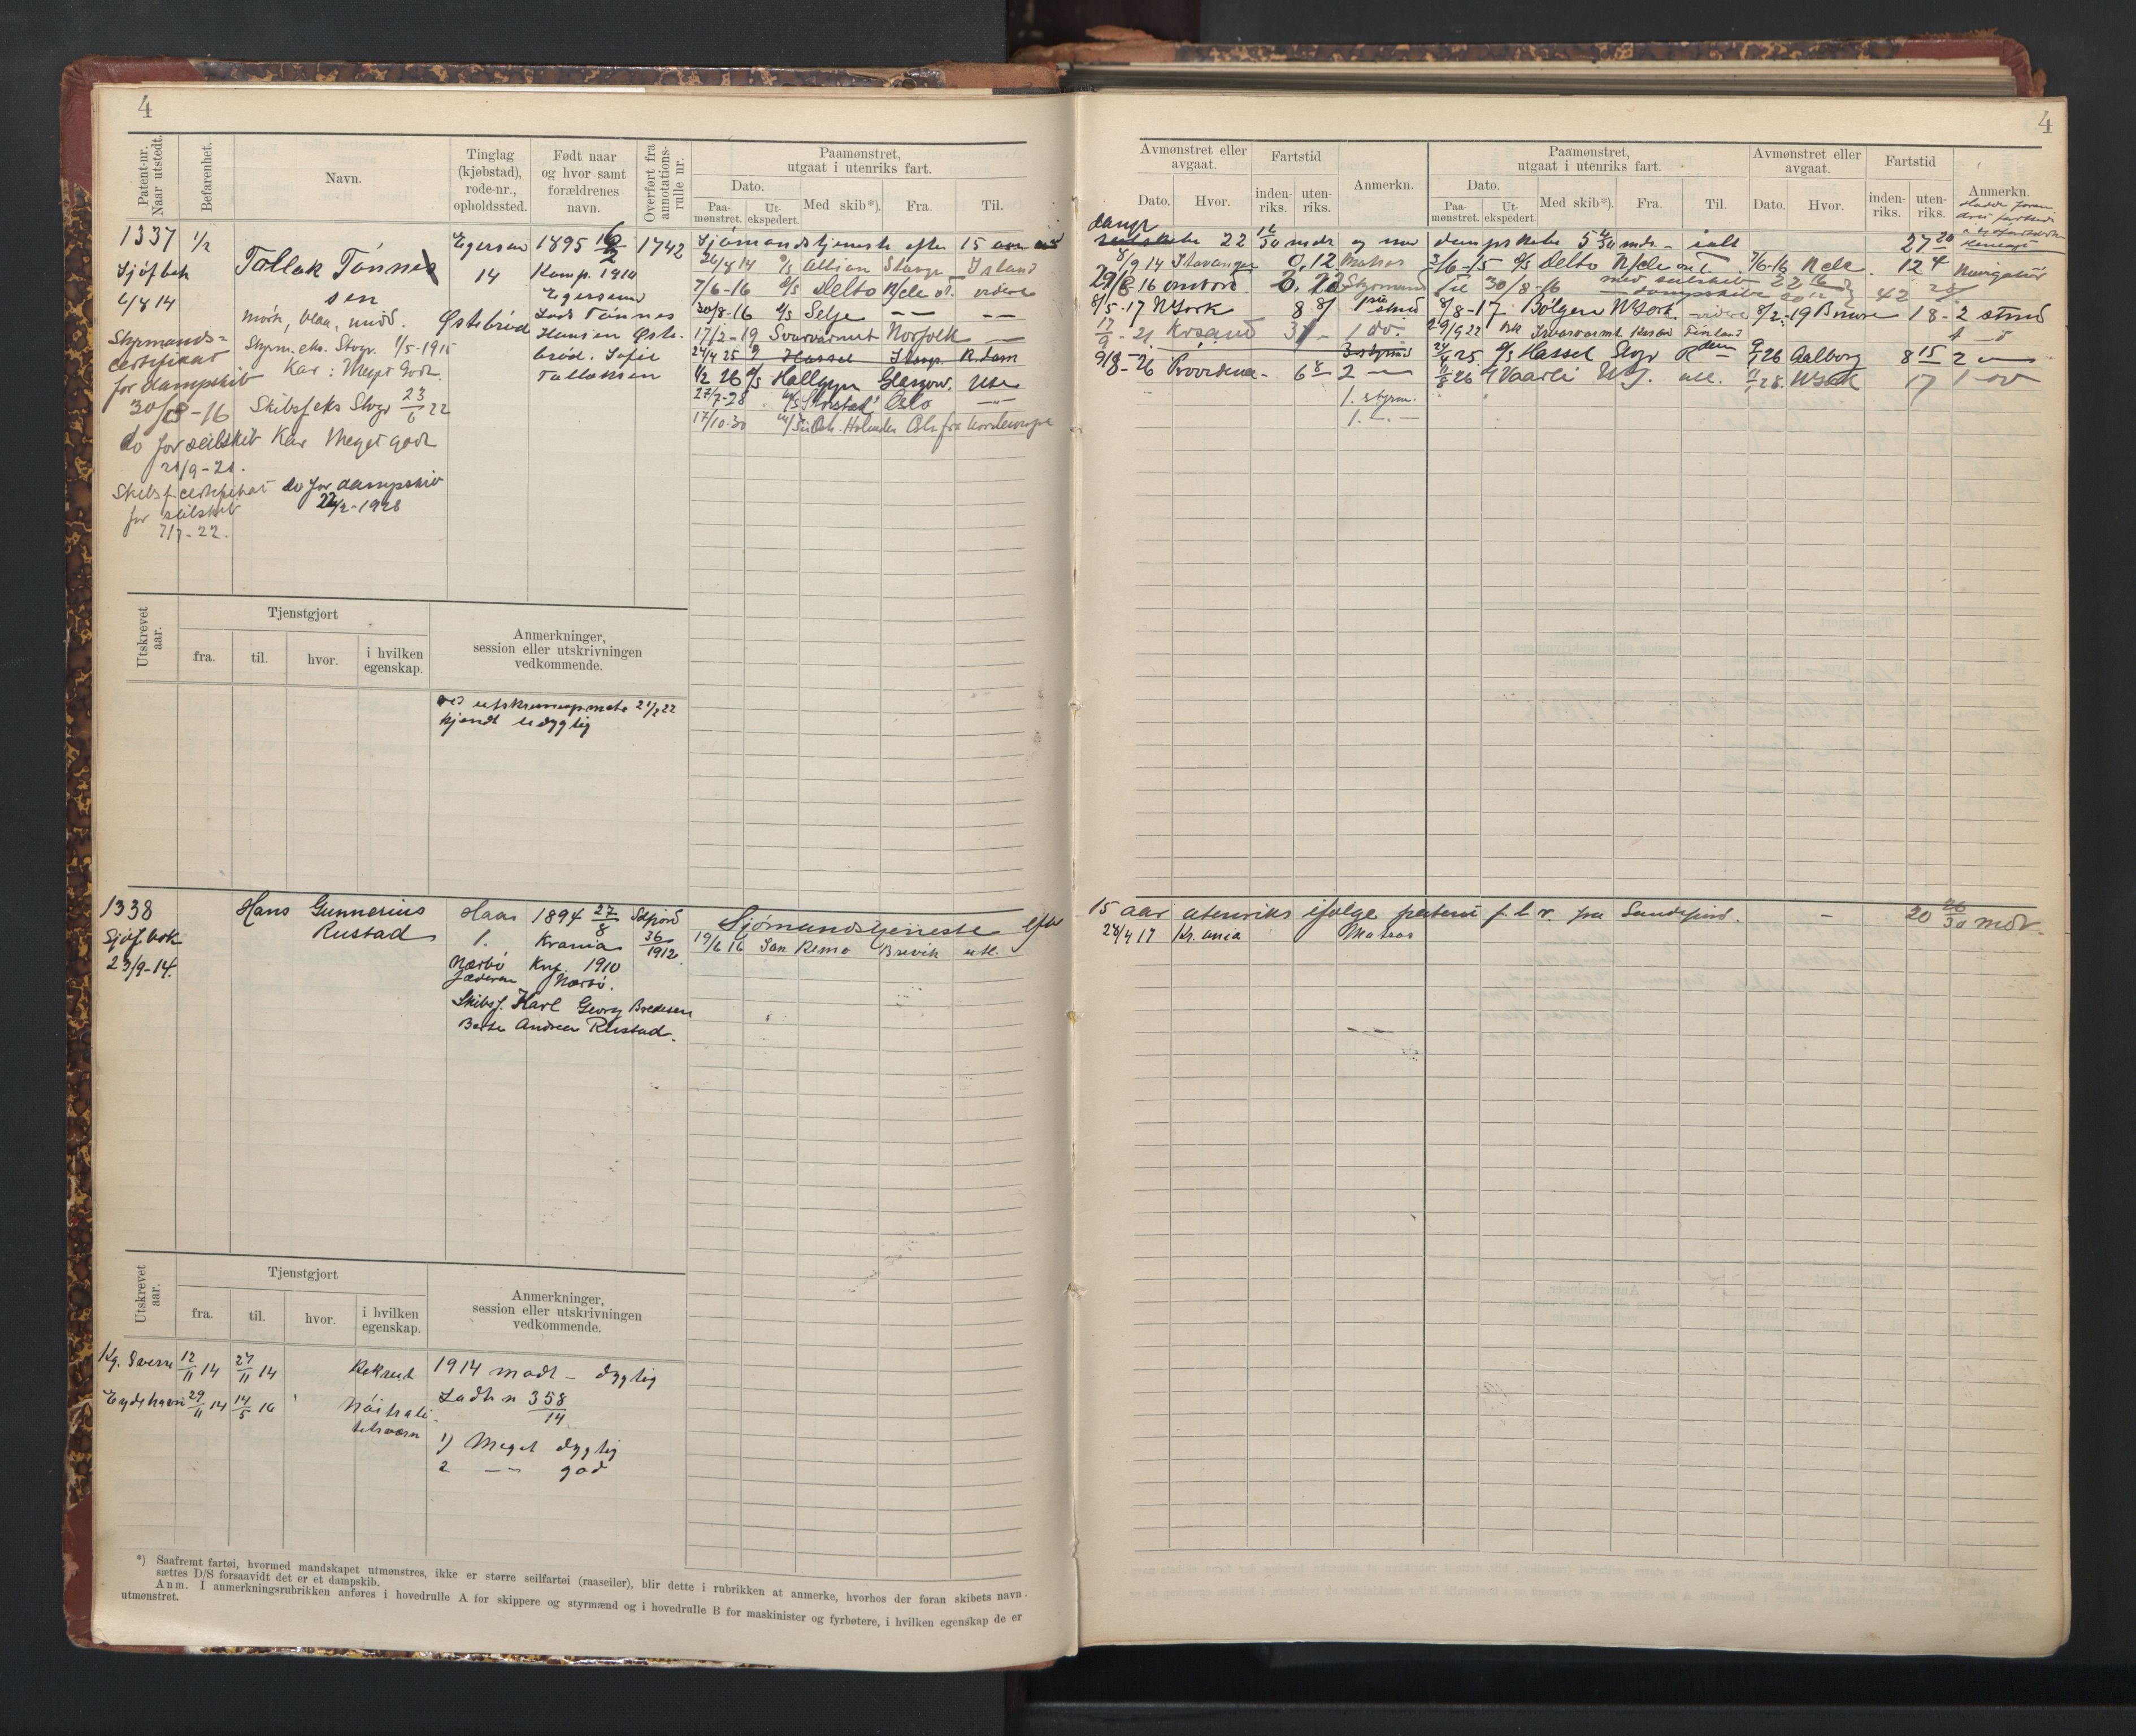 4
Patent-nr. Naar utstedt.
Befarenhet.
Navn.
Tinglag (kjøbstad), rode-nr., opholdssted.
Født naar og hvor samt forældrenes navn.
Overført fra annotations-rulle nr.
Paamønstret, utgaat i utenriks fart.
Dato.
Paa-mønstret.
Ut-ekspedert.
Med skib*).
Fra.
Til.
1337
1/2
Sjøfbok
Tollak Tønnes
sen
mørk, blaa, midd.
Styrm. eks. Stvgr. 1/5-1915
Kar: Meget Godt
Skibsf eks Stvgr 23/6 22
Kar Meget godt
Styrmands=
certifikat
for dampskib
30/8-16
do for seilskib
21/9-21.
Skibsf. certifikat do for dampskib
22/2-1928
for seilskib
7/7-22.
Egersund
14
Østebrød
1895 16/2
Konf. 1910
Egersund
Lods Tønnes
Hansen Øste-
brød. Sofie
Tollaksen
1742
Sjømandstjeneste efter 15 aar
26/4 14 Albion Stavgr Island
7/6-16 D/S Delto N/cle o.l. videre
30/8-16 D/S Selje — —
17/2-19 Svarvarnut Norfolk —
24/4 25 Hassel Stavgr. R.dam
1/2 26 D/S Hallgyn Glasgow. Use
27/7-28 Oslo —
17/10-30 Oslo fra Nordeuropa
Utskrevet aar.
Tjenstgjort
fra.
til.
hvor.
i hvilken egenskap.
Anmerkninger, session eller utskrivningen vedkommende.
ved utskrivningsmøte 21/2 22
kjendt udygtig
1338
Sjøf.bok
23/9-14.
Hans Gunnerius
Rustad
Haa
1.
Nærbø
Jæderen
1894 27/8
Krania
Knf. 1910
Nærbø.
Skibsf. Karl Georg Bredesen
Berte Andrea Rustad.
Sdfjord
36/1912
Sjømandstjeneste efter
19/6 16 San Remo Brevik utl.
Utskrevet aar.
Tjenstgjort
fra.
til.
hvor.
i hvilken egenskap.
Anmerkninger, session eller utskrivningen vedkommende.
Kg. Sverre 12/11 14 27/11 14 Rekrut 1914 mødt – dygtig
Eydehavn 29/11 14 14/5 16 Nøitrali-
tetsværn
358/14
1) Meget dygtig
2 — god
*) Saafremt fartøi, hvormed mandskapet utmønstres, ikke er større seilfartøi (raaseiler), blir dette i rubrikken at anmerke, hvorhos der foran skibets navn
sættes D/S forsaavidt det er et dampskib.
Anm. I anmerkningsrubrikken anføres i hovedrulle A for skippere og styrmænd og i hovedrulle B for maskinister og fyrbøtere, i hvilken egenskap de er
utmønstret.
4
Avmønstret eller avgaat.
Dato.
Hvor.
Fartstid
inden-riks.
uten-riks.
Anmerkn.
Paamønstret, utgaat i utenriks fart.
Dato.
Paa-mønstret.
Ut-ekspedert.
Med skib*).
Fra.
Til.
Avmønstret eller avgaat.
Dato.
Hvor.
Fartstid
inden-riks.
uten-riks.
Anmerkn.
22 16/30 mdr og med dampskibe 5 4/30 mdr. – ialt 27 20
8/9 14 Stavanger 0,12 Matros 3/6-15 D/S Delto N/cle o.l. 7/6-16 N cle. 12 4 Navigatør
29/8 16 ombord. Styrmand til 30/8-16 med seilskib 22
dampskibe 20 42
8/5-17 N York 8 8/ 8/8-17 Bølgen N York. videre 8/2-19 18 - 2 stmd
17/9-21. Krsand 31 - 1 do. 29/9 22 Finland
3 styrmd 24/4 25 D/S Hassel Stvgr R dam 9/1 26 Aalborg 8 15 2 —
9/8-26 6 8 2 — 11/8 26 Vaarli 11/1 28. N York 17 1 do
1. styrm.
1. — —
15 aar utenriks ifølge patent f. b. r. fra Sandefjord. – 20 26/30 mdr.
28/4 17 Kr.ania Matros